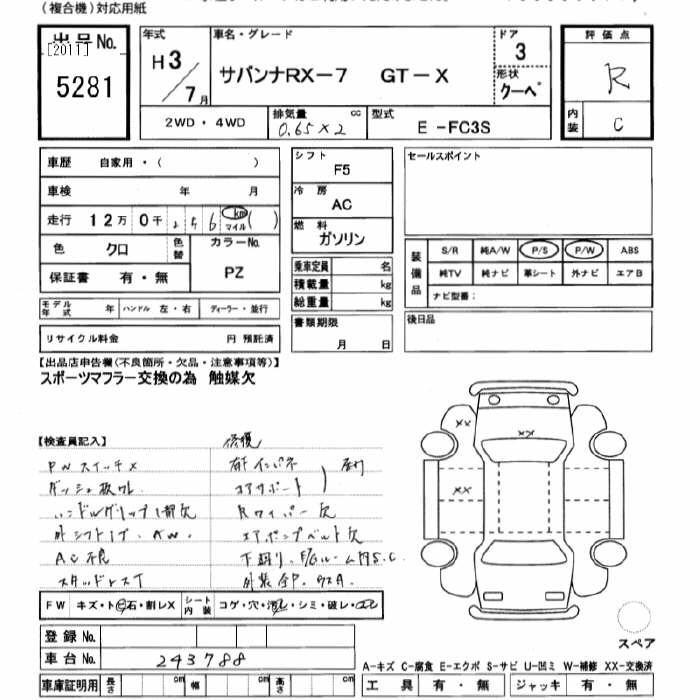 (複合機)対応用紙
出品No. [2011] 5281
年式 H3/7月
車名・グレード サバンナRX-7 GT-X
ドア 3
形状 クーペ
評価点 R
内装 C
2WD・4WD
排気量 0.65×2 cc
型式 E-FC3S
車歴 自家用・( )
車検 年 月
走行 12万0千256 km マイル ( )
色 クロ 色替 カラーNo. PZ
保証書 有・無
モデル年式 年 ハンドル 左・右 ディーラー・並行
リサイクル料金 円 預託済
シフト F5
冷房 AC
燃料 ガソリン
乗車定員 名
積載量 kg
総重量 kg
書類期限 月 日
セールスポイント
装備品 S/R 純A/W P/S P/W ABS
純TV 純ナビ 革シート 外ナビ エアB
ナビ型番:
後日品
【出品店申告欄(不良箇所・欠品・注意事項等)】
スポーツマフラー交換の為 触媒欠
【検査員記入】 修復
PWスイッチ×
コアサポート
Rワイパー欠
エアポンプベルト欠
AC不良
FW キズ・ト・石・割レX シート内装 コゲ・穴・汚レ・シミ・破レ・コレ
登録No.
車台No. 243788
車庫証明用 長さ cm 幅 cm 高さ cm
XX
XX
XX
スペア
A-キズ C-腐食 E-エクボ S-サビ U-凹ミ W-補修 XX-交換済
工具 有・無 ジャッキ 有・無